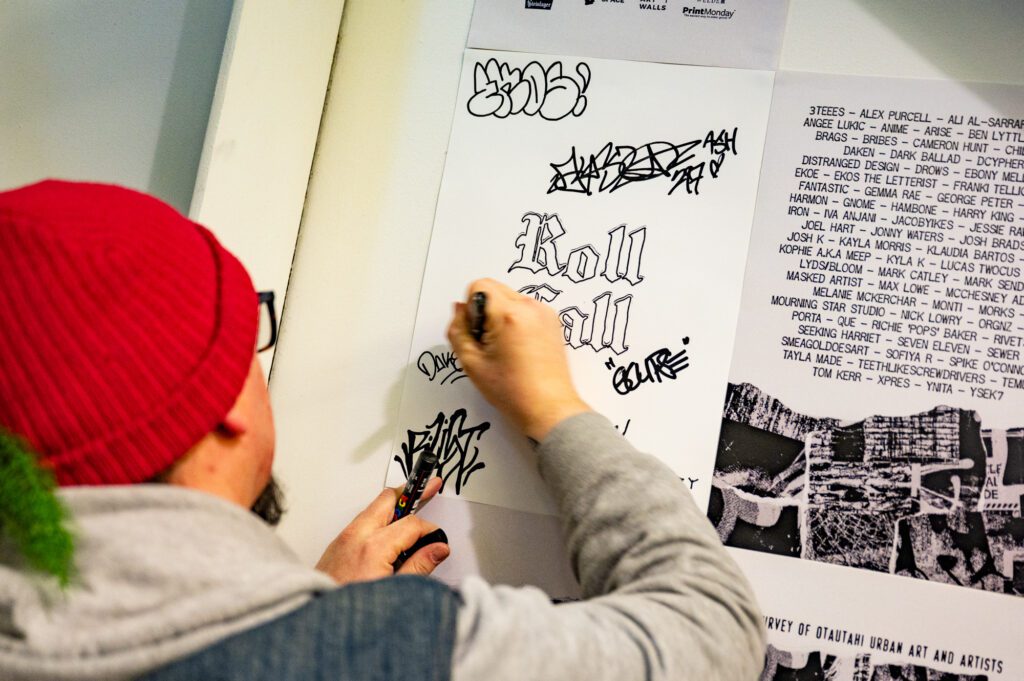 Steinlager
SPACE
ART
WALLS
PrintMonday
EKOS!
ASH
Roll
Call
3TEEES – ALEX PURCELL – ALI AL-SARRAF
ANGEE LUKIC – ANIME – ARISE – BEN LYTTL
BRAGS – BRIBES – CAMERON HUNT – CHI
DAKEN – DARK BALLAD – DCYPHER
DISTRANGED DESIGN – DROWS – EBONY MEL
EKOE – EKOS THE LETTERIST – FRANKI TELLIC
FANTASTIC – GEMMA RAE – GEORGE PETER
HARMON – GNOME – HAMBONE – HARRY KING
IRON – IVA ANJANI – JACOBYIKES – JESSIE RA
JOEL HART – JONNY WATERS – JOSH BRADS
JOSH K – KAYLA MORRIS – KLAUDIA BARTOS –
KOPHIE A.K.A MEEP – KYLA K – LUCAS TWOCUS
LYDS/BLOOM – MARK CATLEY – MARK SEND
MASKED ARTIST – MAX LOWE – MCCHESNEY AD
MELANIE MCKERCHAR – MONTI – MORKS –
MOURNING STAR STUDIO – NICK LOWRY – ORGNZ –
PORTA – QUE – RICHIE 'POPS' BAKER – RIVET
SEEKING HARRIET – SEVEN ELEVEN – SEWER
SMEAGOLDOESART – SOFIYA R – SPIKE O'CONNO
TAYLA MADE – TEETHLIKESCREWDRIVERS – TEM
TOM KERR – XPRES – YNITA – YSEK7
URVEY OF OTAUTAHI URBAN ART AND ARTISTS